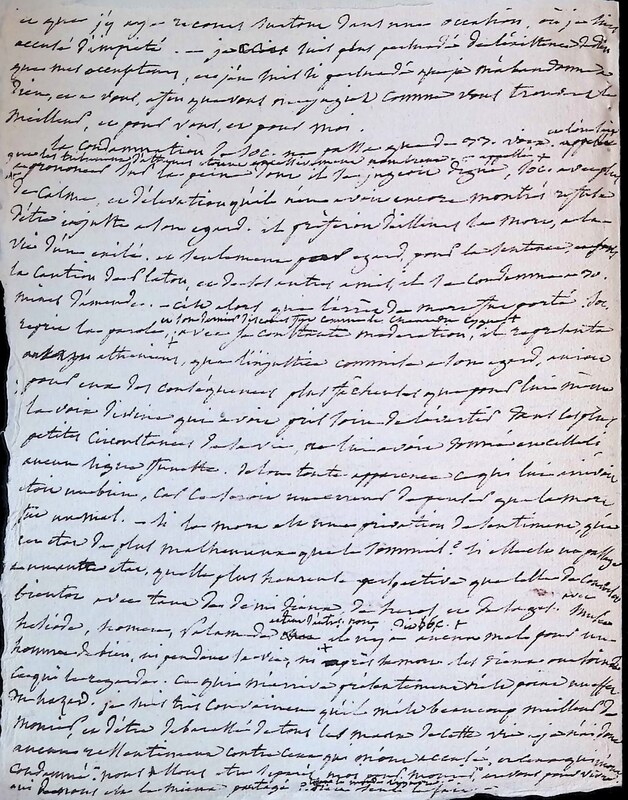 ce que j'y aye recours surtout dans une occasion, où je suis
accusé d'impieté. — je suis plus persuadé de l'existence de dieu
que mes accusateurs, et j'en suis si persuadé que je m'abandonne a
dieu, et a vous, afin que vous me jugiez comme vous trouverez le
meilleur, et pour vous, et pour moi.
la condamnation de Soc. ne passa que de 33. voix.
prononcer sur la peine dont il le jugeoit digne, Soc. avec plus
de calme, et d'élevation qu'il n'en avoir encore montrés refusa
d'être injuste a son egard. il préferoit d'ailleurs la mort, a la
vie d'un exilé. et seulement par egard, pour la sentence, et sous
la caution de Platon, et de ses autres amis, il se condamne a 30.
mines d'amende. — c'est alors que l'arrêt de mort fut porté. Soc.
reprit la parole, avec sa constante moderation, il represente
aux atheniens, que l'injustice commise a son egard, auroit
pour eux des consequences plus fâcheuses que pour lui même
la voix divine qui avoit pris soin de l'avertir dans les plus
petites circonstances de sa vie, ne lui avoit donné en celle là
aucun signe funeste. selon toute apparence ce qui lui arrivoit
étoit un bien, car ce seroit une erreur de penser que la mort
fut un mal. — si la mort est une privation de sentiment, que
cet état de plus malheureux que le sommeil? si elle est un passage
a un autre état, quelle plus heureuse perspective que celle de converser
bientot avec tant de demi dieux, de heros, et de sages. avec Musée
hésiode, homere, Palamede il n'y a aucun mal pour un
homme de bien, ni pendant sa vie, ni après sa mort. les dieux ont soin de
ce qui le regarde. ce qui m'arrive présentement n'est point un effet
du hazard. je suis très convaincu qu'il m'est beaucoup meilleur de
mourir, et d'être debarassé de tous les maux de cette vie. je n'ai donc
aucun ressentiment contre ceux qui m'ont accusé, et ceux qui m'ont
condamné. nous allons etre separés, moi pour mourir, et vous pour vivre.
qui de nous a le mieux partagé